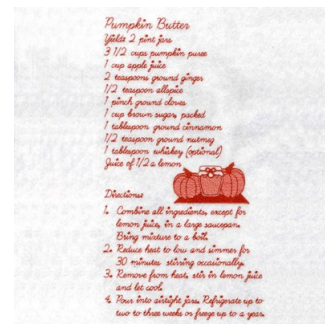 Pumpkin Butter
Yields 2 pint jars
3 1/2 cups pumpkin puree
1 cup apple juice
2 teaspoons ground ginger
1/2 teaspoon allspice
1 pinch ground cloves
1 cup brown sugar, packed
1 tablespoon ground cinnamon
1/2 teaspoon ground nutmeg
1 tablespoon whiskey (optional)
Juice of 1/2 a lemon
Directions:
1. Combine all ingredients, except for
lemon juice, in a large saucepan.
Bring mixture to a boil.
2. Reduce heat to low and simmer for
30 minutes stirring occasionally.
3. Remove from heat, stir in lemon juice
and let cool.
4. Pour into airtight jars. Refrigerate up to
two to three weeks or freeze up to a year.